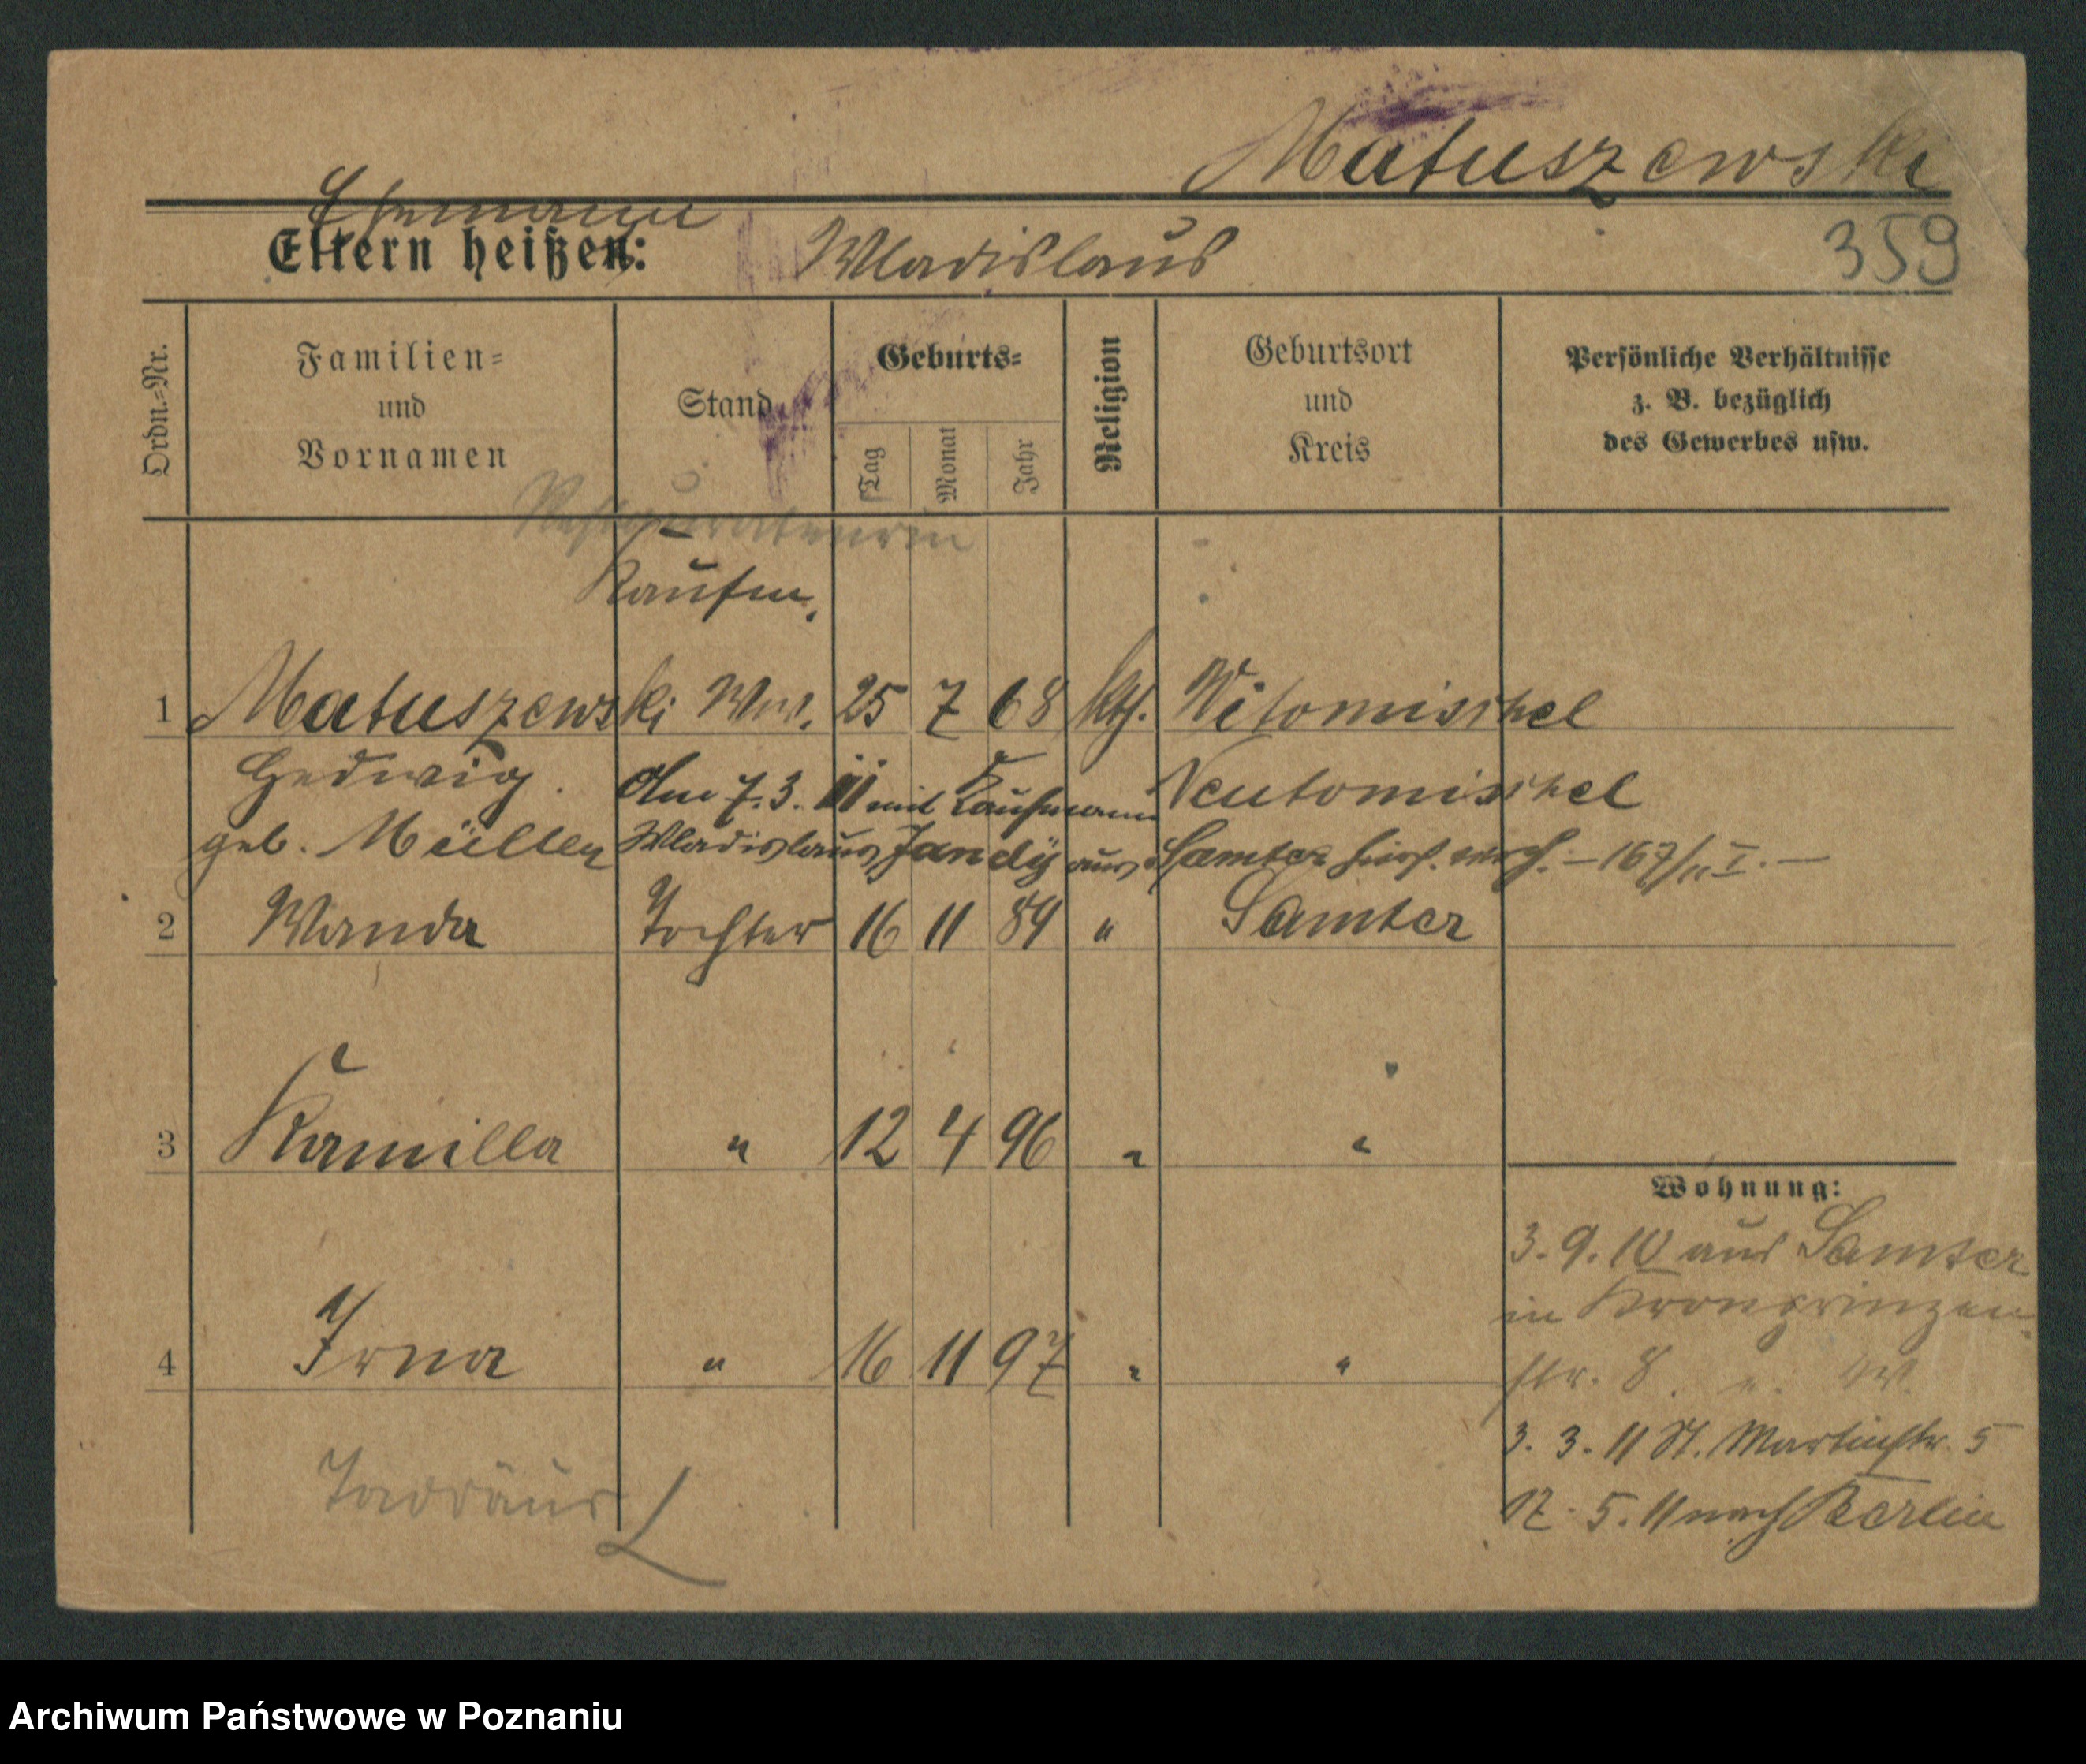 Matuszewski
Ehemann
Eltern heißen: Wladislaus
359
Ordn.-Nr.
Familien-
und
Vornamen
Stand
Geburts-
Tag
Monat
Jahr
Religion
Geburtsort
und
Kreis
Persönliche Verhältnisse
z. B. bezüglich
des Gewerbes usw.
Restaurateurin
Kaufm.
1 Matuszewski Ww. 25 7 68 kth. Witomischel
Hedwig Am 7. 3. 11 mit Kaufmann Neutomischel
geb. Müller Wladislaus Jandy aus Samter hier verh. – 167/11 I. –
2 Wanda Tochter 16 11 89 " Samter
3 Kamilla " 12 4 96 " "
Wohnung:
3. 9. 10 aus Samter
in Kronprinzen-
4 Irna " 16 11 97 " "
str. 8.
3. 3. 11 St. Martinstr. 5
Taddäus
17. 5. 11 nach Berlin
Archiwum Państwowe w Poznaniu